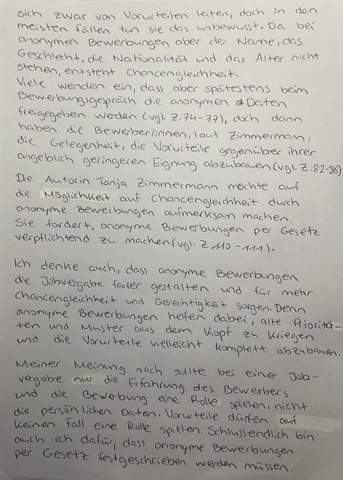 sich zwar von Vorurteilen leiten, doch in den
meisten fällen tun sie das unbewusst. Da bei
anonymen Bewerbungen aber der Name, das
Geschlecht, die Nationalität und das Alter nicht
stehen, entsteht Chancengleichheit.
Viele wenden ein, dass aber spätestens beim
Bewerbungsgespräch die anonymen Daten
freigegeben werden (vgl. Z. 74-77), doch dann
haben die Bewerber/innen, laut Zimmermann,
die Gelegenheit, die Vorurteile gegenüber ihrer
angeblich geringeren Eignung abzubauen (vgl. Z. 82-86)
Die Autorin Tanja Zimmermann möchte auf
die Möglichkeit auf Chancengleichheit durch
anonyme Bewerbungen aufmerksam machen.
Sie fordert, anonyme Bewerbungen per Gesetz
verpflichtend zu machen (vgl. Z 110-111).
Ich denke auch, dass anonyme Bewerbungen
die Jobvergabe fairer gestalten und für mehr
Chancengleichheit und Gerechtigkeit sorgen. Denn
anonyme Bewerbungen helfen dabei, alte Prioritä-
ten und Muster aus dem Kopf zu kriegen
und die Vorurteile vielleicht komplett abzubauen.
Meiner Meinung nach sollte bei einer Job-
vergabe nur die Erfahrung des Bewerbers
und die Bewerbung eine Rolle spielen, nicht
die persönlichen Daten. Vorurteile dürfen auf
keinen Fall eine Rolle spielen. Schlussendlich bin
auch ich dafür, dass anonyme Bewerbungen
per Gesetz festgeschrieben werden müssen.